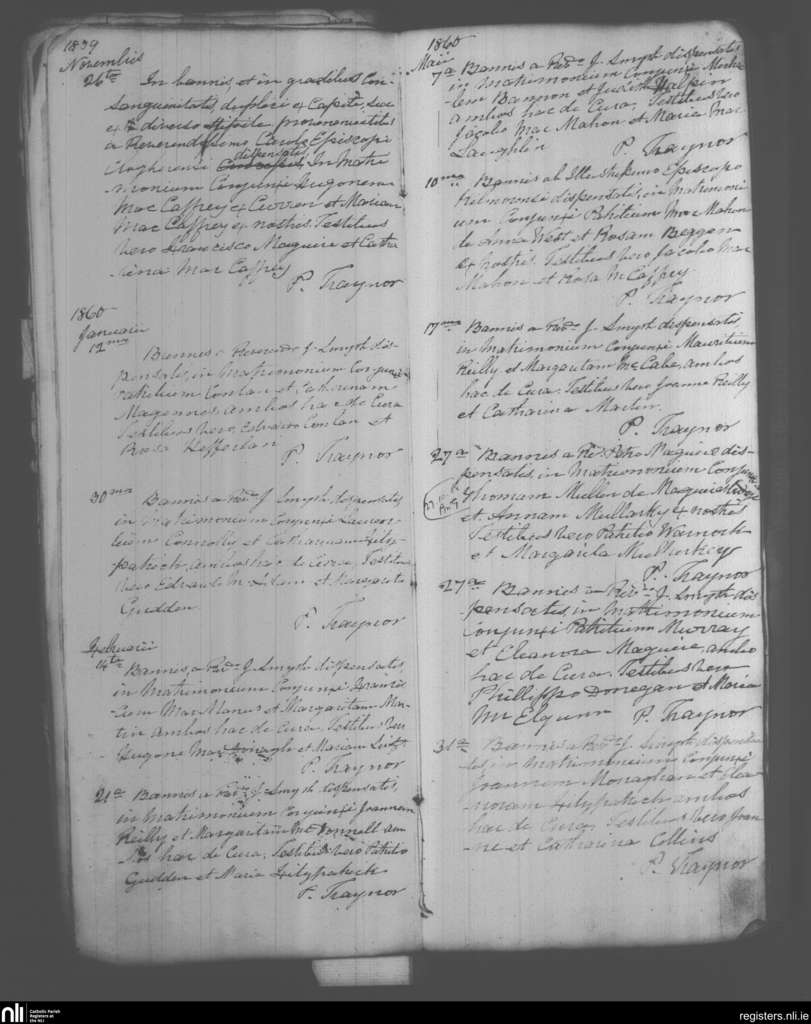 1859
Novembris
26ta In bannis, et in gradibus Con-
sanguinitatis duplici ex Capite, sive
ex diverso Stipite provenientibus
a Reverendissimo Carolo Episcopi
Clogherensi dispensatis, In Matri
monium Conjunxi Hugonem
Mac Caffrey ex Currin et Mariam
Mac Caffrey ex nostris. Testibus
vero Francisco Maguire et Catha
rina Mac Caffrey
P. Traynor
1860
Januarii
12ma Bannis a Reverendo J. Smyth dis-
pensatis, in Matrimonium Conjunxi
Patritium Conlan et Catharinam
Magennis, ambos hac de Cura
Testibus vero, Edvardo Conlan et
Rosa Heffernan
P. Traynor
30ma Bannis a Revdo J. Smyth dispensatis,
in Matrimonium Conjunxi
Connolly et Catharinam Fitz-
patrick, ambos hac de Cura, Testibus
vero Edvardo et Margarita
Gudden
P. Traynor
Februarii
14ta Bannis, a Revdo J. Smyth dispensatis,
in Matrimonium Conjunxi Francis
cum Mac Manus et Margaritam Mar-
tin ambos hac de Cura Testibus vero
Hugone Mac et Mariam
P. Traynor
21a Bannis a Revdo J. Smyth dispensatis,
in Matrimonium Conjunxi Joannem
Reilly et Margaritam Mc Donnell am
bos hac de Cura, Testibus vero Patritio
Gudden et Maria Fitzpatrick
P. Traynor
1860
Maii
7a Bannis a Revdo J. Smyth dispensatis
in Matrimonium Conjunxi Micha
elem Bannon et Judith Halpin
ambos hac de Cura, Testibus vero
Jacobo Mac Mahon et Maria Mac
Laughlin P. Traynor
10ma Bannis ab Illustrissimo Episcopo
Kilmorensi dispensatis, in Matrimoni
um Conjunxi Patritium Mac Mahon
de Anna West et Rosam Beggan
ex nostris. Testibus vero Jacobo Mac
Mahon et Rosa McCaffrey
P. Traynor
17ma Bannis a Revdo J. Smyth dispensatis,
in Matrimonium Conjunxi Mauritium
Reilly et Margaritam McCabe, ambos
hac de Cura. Testibus vero Joanne Reilly
et Catharina Martin.
P. Traynor
27a Bannis a Revdo Petro Maguire dis-
pensatis, in Matrimonium Conjunxi
Thomam Mullen de
et Annam Mullarky ex nostris
Testibus vero Patritio Warnock
et Margarita Mullarkey
P. Traynor
27a Bannis a Revdo J. Smyth dis
pensatis, in Matrimonium
Conjunxi Patritium Murray
et Eleanora Maguire, ambo
hac de Cura. Testibus vero
Phillippo Donegan et Maria
Mc Elgunn P. Traynor
31a Bannis a Revdo J. Smyth dispensa
tis in Matrimonium Conjunxi
Joannem Monaghan et Elea
noram Fitzpatrick ambos
hac de Cura, Testibus vero Joan-
ne et Catharina Collins
P. Traynor
nli Catholic Parish
Registers at
the NLI
registers.nli.ie